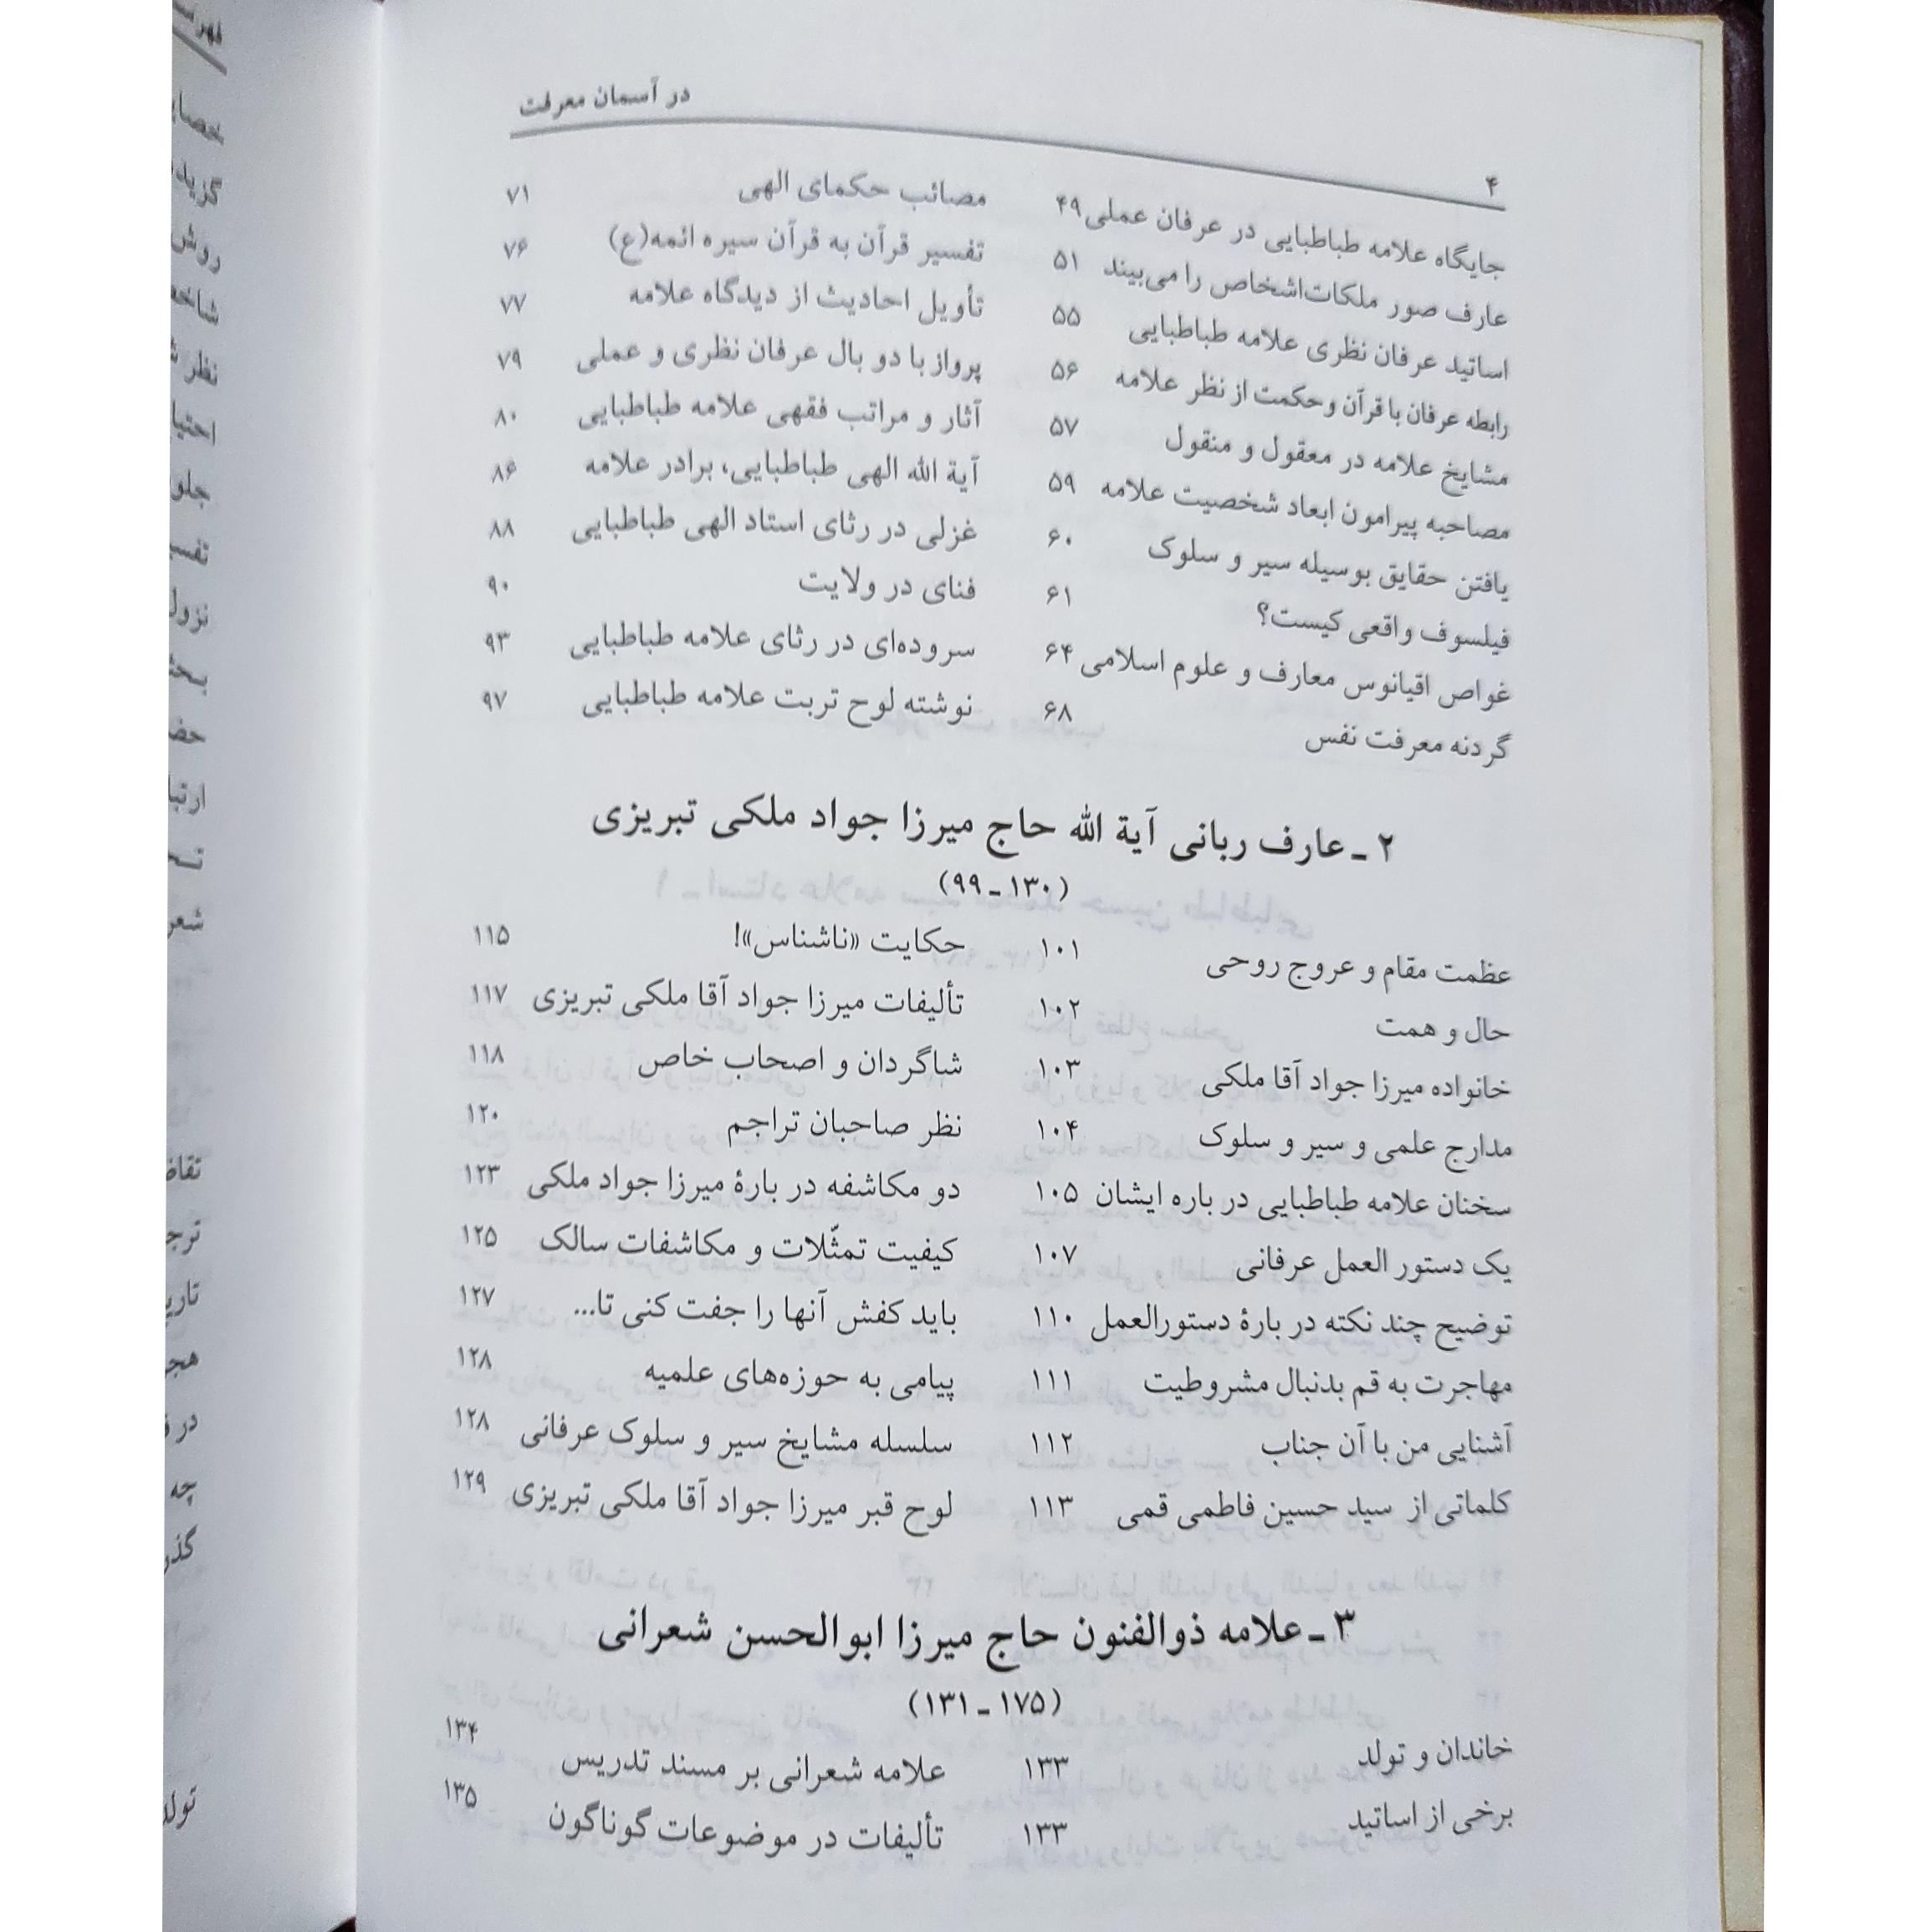 در آسمان معرفت
۴
جایگاه علامه طباطبایی در عرفان عملی ۴۹
عارف صور ملکات‌اشخاص را می‌بیند ۵۱
اساتید عرفان نظری علامه طباطبایی ۵۵
رابطه عرفان با قرآن و حکمت از نظر علامه ۵۶
مشایخ علامه در معقول و منقول ۵۷
مصاحبه پیرامون ابعاد شخصیت علامه ۵۹
یافتن حقایق بوسیله سیر و سلوک ۶۰
فیلسوف واقعی کیست؟ ۶۱
غواص اقیانوس معارف و علوم اسلامی ۶۴
گردنه معرفت نفس ۶۸
مصائب حکمای الهی ۷۱
تفسیر قرآن به قرآن سیره ائمه(ع) ۷۶
تأویل احادیث از دیدگاه علامه ۷۷
پرواز با دو بال عرفان نظری و عملی ۷۹
آثار و مراتب فقهی علامه طباطبایی ۸۰
آیة الله الهی طباطبایی، برادر علامه ۸۶
غزلی در رثای استاد الهی طباطبایی ۸۸
فنای در ولایت ۹۰
سروده‌ای در رثای علامه طباطبایی ۹۳
نوشته لوح تربت علامه طباطبایی ۹۷
۲ ـ عارف ربانی آیة الله حاج میرزا جواد ملکی تبریزی
(۱۳۰ ـ ۹۹)
عظمت مقام و عروج روحی ۱۰۱
حال و همت ۱۰۲
خانواده میرزا جواد آقا ملکی ۱۰۳
مدارج علمی و سیر و سلوک ۱۰۴
سخنان علامه طباطبایی در باره ایشان ۱۰۵
یک دستور العمل عرفانی ۱۰۷
توضیح چند نکته در بارۀ دستورالعمل ۱۱۰
مهاجرت به قم بدنبال مشروطیت ۱۱۱
آشنایی من با آن جناب ۱۱۲
کلماتی از سید حسین فاطمی قمی ۱۱۳
حکایت «ناشناس»! ۱۱۵
تألیفات میرزا جواد آقا ملکی تبریزی ۱۱۷
شاگردان و اصحاب خاص ۱۱۸
نظر صاحبان تراجم ۱۲۰
دو مکاشفه در بارۀ میرزا جواد ملکی ۱۲۳
کیفیت تمثّلات و مکاشفات سالک ۱۲۵
باید کفش آنها را جفت کنی تا... ۱۲۷
پیامی به حوزه‌های علمیه ۱۲۸
سلسله مشایخ سیر و سلوک عرفانی ۱۲۸
لوح قبر میرزا جواد آقا ملکی تبریزی ۱۲۹
۳ ـ علامه ذوالفنون حاج میرزا ابوالحسن شعرانی
(۱۷۵ ـ ۱۳۱)
خاندان و تولد ۱۳۳
برخی از اساتید ۱۳۳
علامه شعرانی بر مسند تدریس ۱۳۴
تألیفات در موضوعات گوناگون ۱۳۵